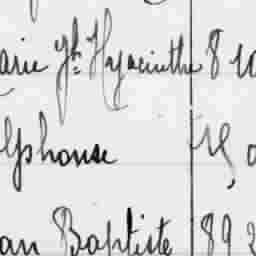 arie Yh Hyacinthe 8 10
lphonse
an Baptiste 89 2